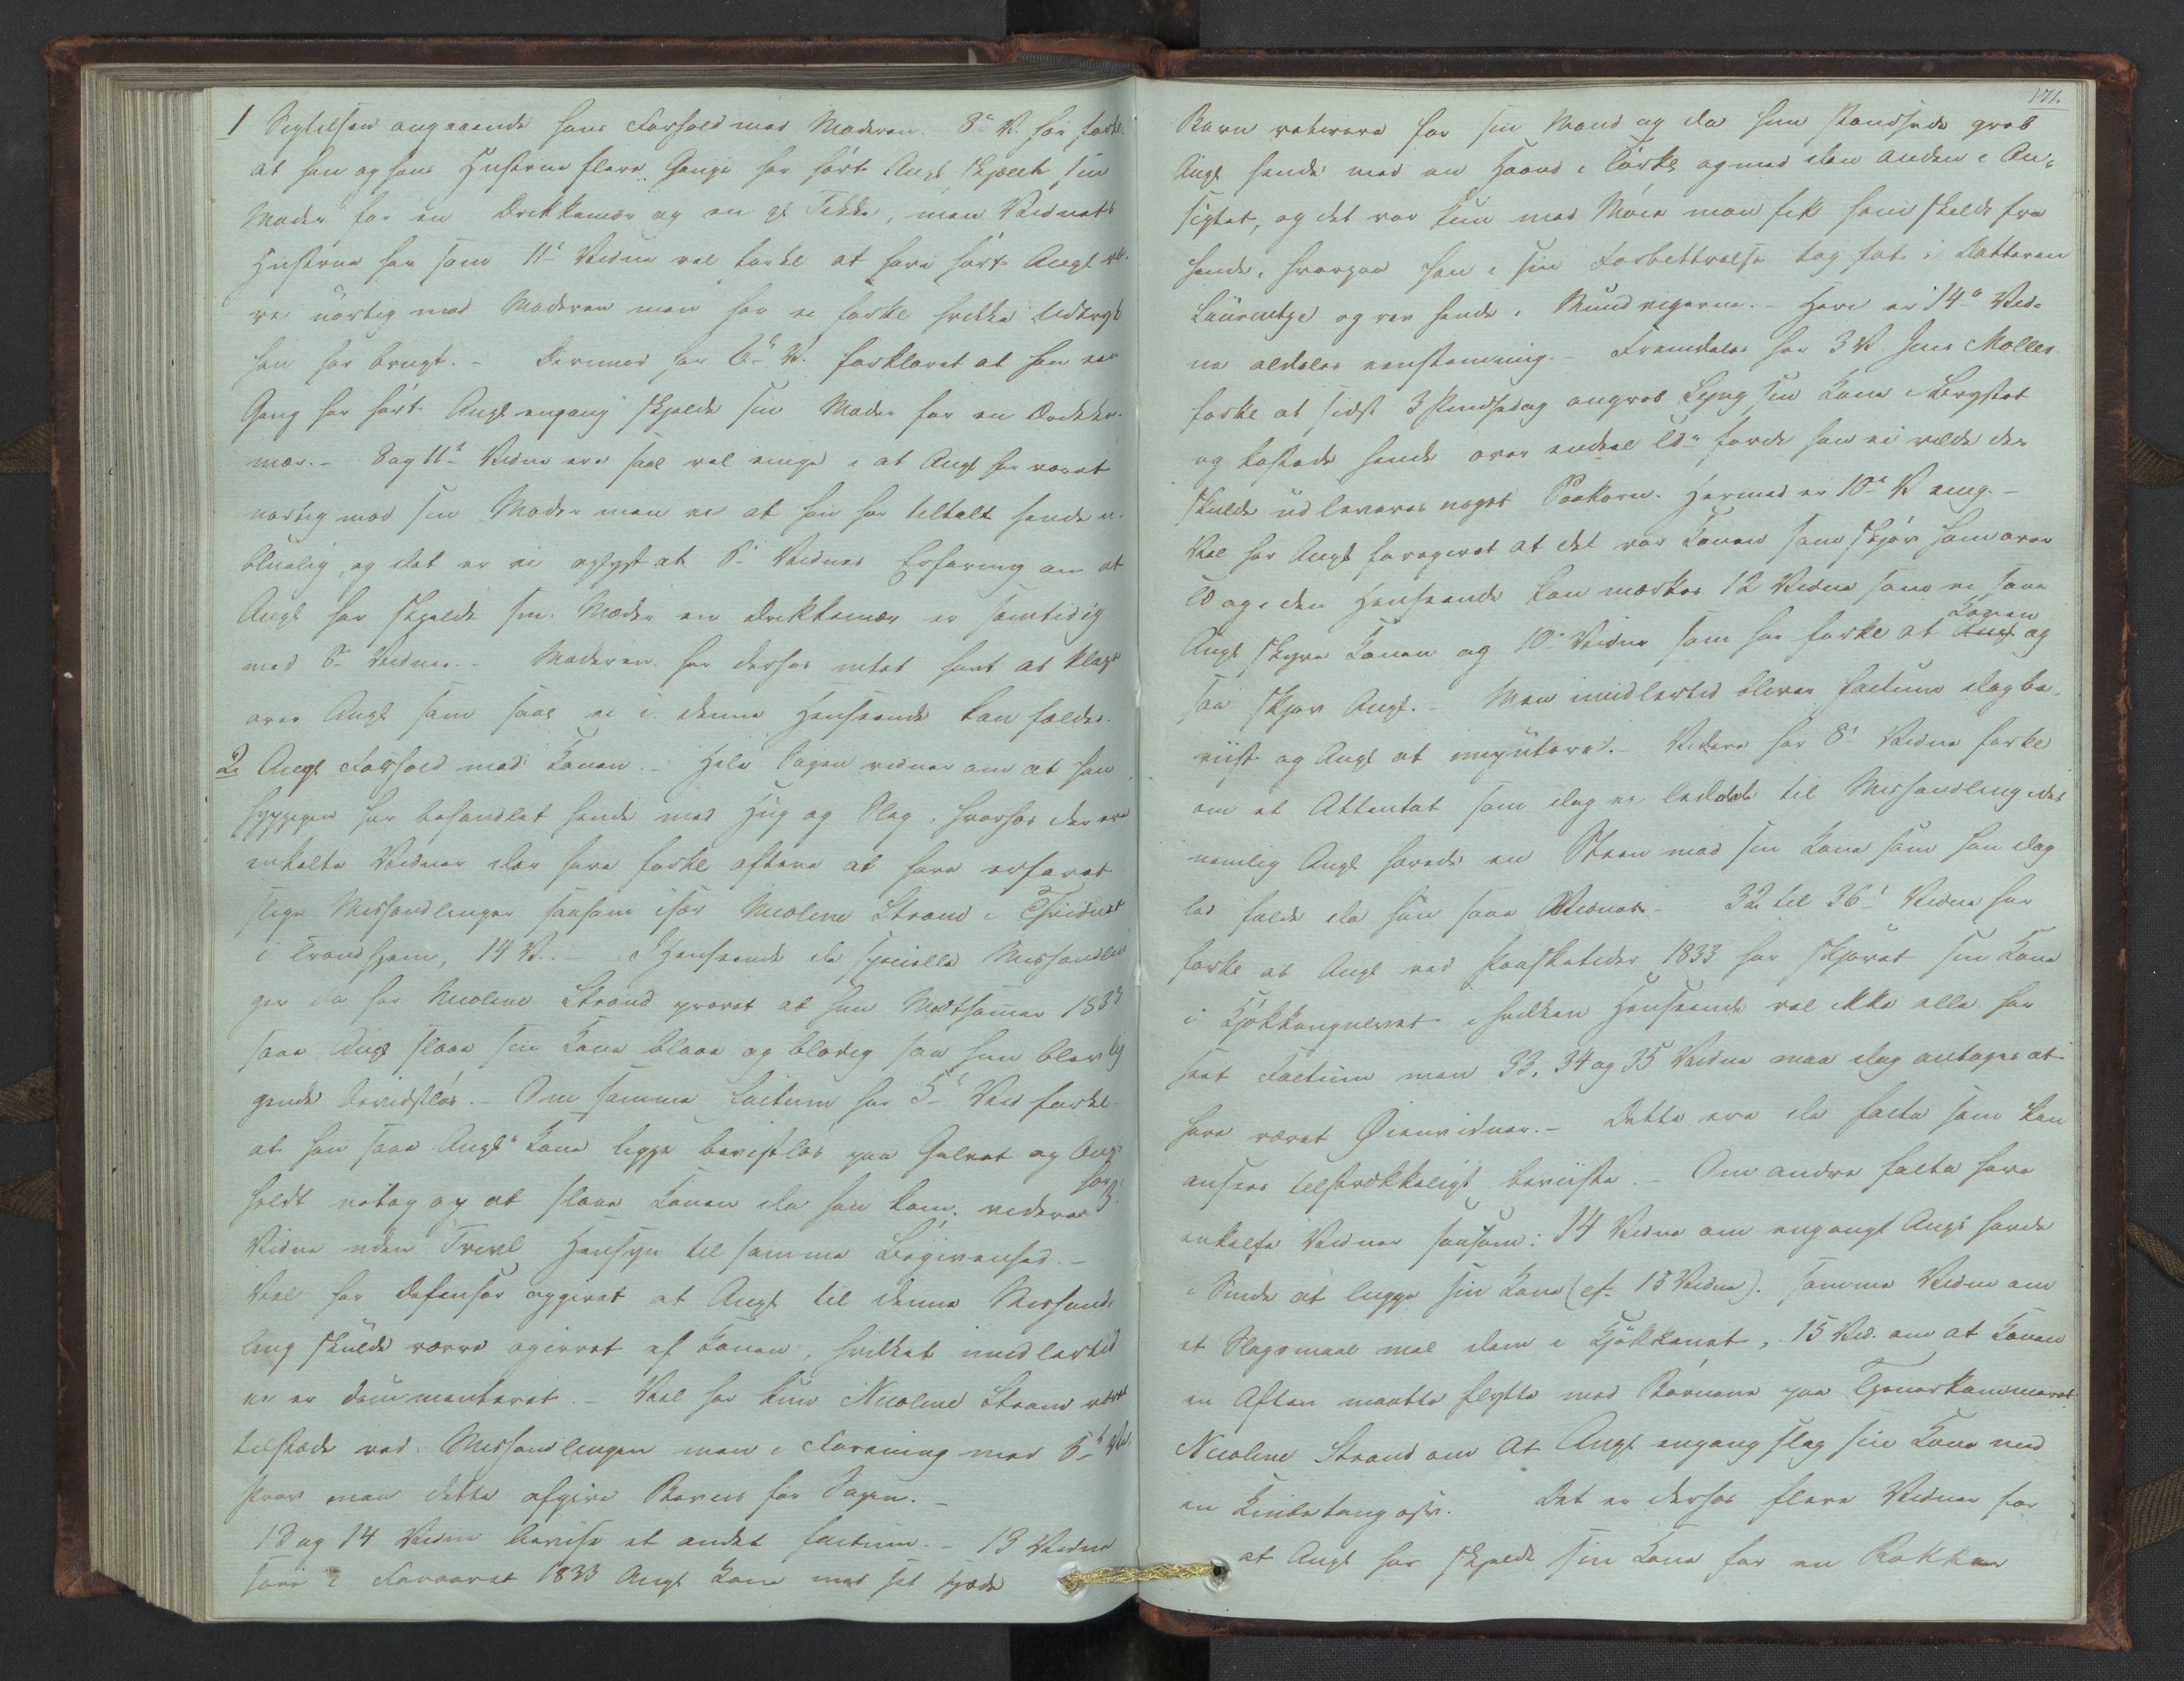 1 Sigtelsen angaaende hans Forhold mod Moderen. 8de V. har forkl.
at han og hans Hustrue flere Gange har hørt Angl. skjælde sin
Moder for en Drikkemær og en gl. Tikke, men Vidnets
Hustrue har som 11te Vidne vel forkl. at have hørt Angl. væ-
re uartig mod Moderen men har ei forkl. hvilke Udtryk
han har brugt. – Derimod har 6te V. forklaret at han een
Gang har hørt Angl. engang skjælde sin Moder for en Drikke-
mær. – 8 og 11te Vidne ere saal. vel enige i at Angl. har været
uartig mod sin Moder men ei at han har tiltalt hende u-
blu­elig, og det er ei oplyst at 6te Vidnes Erfaring om at
Angl. har skjældt sin Moder en Drikkemær er samtidig
med 8de Vidnes. – Moderen har derhos intet havt at klage
over Angl. som saal. ei i denne Henseende kan fældes.
2. Angl. Forhold mod Konen. – Hele Sagen vidner om at han
hyppigen har behandlet hende med Hug og Slag, hvorhos der ere
enkelte Vidner der have forkl. oftere at have erfaret
slige Mishandlinger saasom især Nicoline Strand i Thinghuset
i Trondhjem, 14 V. – I Henseende de specielle Mishandlin-
ger da har Nicoline Strand provet at hun Midtsomer 1833
saae Angl. slaae sin Kone blaae og blodig saa hun blev lig-
gende bevidstløs. – Om samme Factum har 5te Vid. forkl.
at han saae Angl. Kone ligge bevistløs paa Gulvet og Angl.
holdt netop op at slaae Konen da han kom. videre har
Vidne uden Tvivl Hensyn til samme Begivenhed. –
Vel har Defensor opgivet at Angl. til denne Mishand-
ling skulde være ægirret af Konen, hvilket imidlertid
ei er documenteret. – Vel har kun Nicoline Strand været
tilstæde ved Mishandlingen men i Forening med 5te
Prov maa dette afgive Beviis for Sagen. –
13 og 14 Vidne bevise et andet factum. – 13 Vidne
saae i Foraaret 1833 Angl. Kone med sit spæde
171.
Barn retirere for sin Mand og da hun standsede greb
Angl. hende med en Haand i Tørkl. og med den anden i An-
sigtet, og det var kun med Møie man fik ham skildt fra
hende, hvorpaa han i sin Forbittrelse tog fat i Datteren
Laurentze og rev hende i Mundvigerne. – Heri er 14de Vid-
ne aldeles eenstemmig. – Fremdeles har 3 V. Jens Moller
forkl. at sidst 3 Pindsedag angreb Lyng sin Kone i Brystet
og kastede hende over endeel fordi han ei vilde der
skulde udleveres noget Saakorn. Hermed er 10de V. enig. –
Vel har Angl. foregivet at det var Konen som skjøv ham over
og i den Henseende kan mærkes 12 Vidne som ei saae
Angl. skyve Konen og 10de Vidne som har forkl. at Konen og
saa skjøv Angl. – Men imidlertid bliver factum dog be-
viist og Angl. at imputere. – Videre har 8de Vidne forkl.
om et Attentat som dog ei leddede til Mishandling idet
nemlig Angl. hævede en Steen mod sin Kone som han dog
lod falde da han saae Vidnet. – 32 til 36te Vidne har
forkl. at Angl. ved Paasketider 1833 har skjøvet sin Kone
i Kjøkkengulvet i hvilken Henseende vel ikke alle har
seet Factum men 33, 34 og 35 Vidne maa dog antages at
have været Øienvidner. – Dette ere de facta som kan
ansees tilstrækkeligt beviiste. – Om andre facta have
enkelte Vidner saasom: 14 Vidne om engangl. Angl. havde
i Sinde at lugge sin Kone (cf. 15 Vidne). samme Vidne om
et Slagsmaal mel. dem i Kjøkkenet, 15 Vid. om at Konen
en Aften maatte flytte med Børnene paa Tjenerkammeret.
Nicoline Strand om at Angl. engang slog sin Kone med
en Knibetang osv. Det er derhos flere Vidner for
at Angl. har skjældt sin Kone for en Rakker